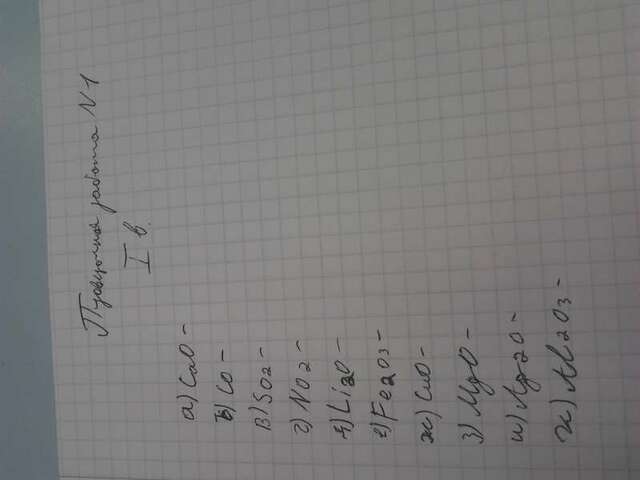 Проверочная работа N1
I в.
а) CaO -
б) CO -
в) SO2 -
г) NO2 -
д) Li2O -
е) Fe2O3 -
ж) CuO -
з) MgO -
и) Ag2O -
к) Al2O3 -